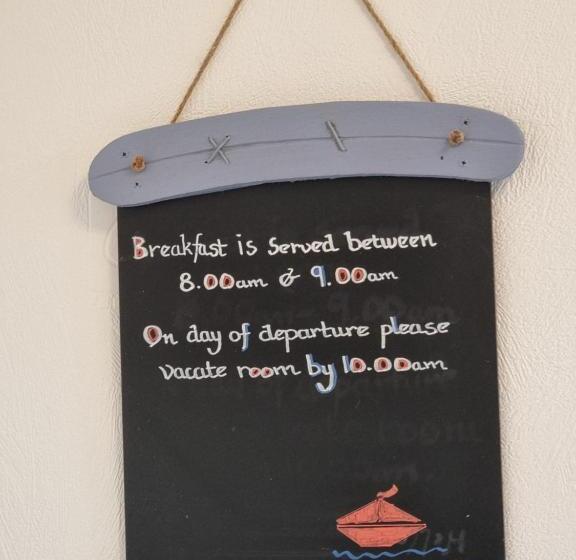 Breakfast is Served between
8.00am & 9.00am
On day of departure please
vacate room by 10.00am